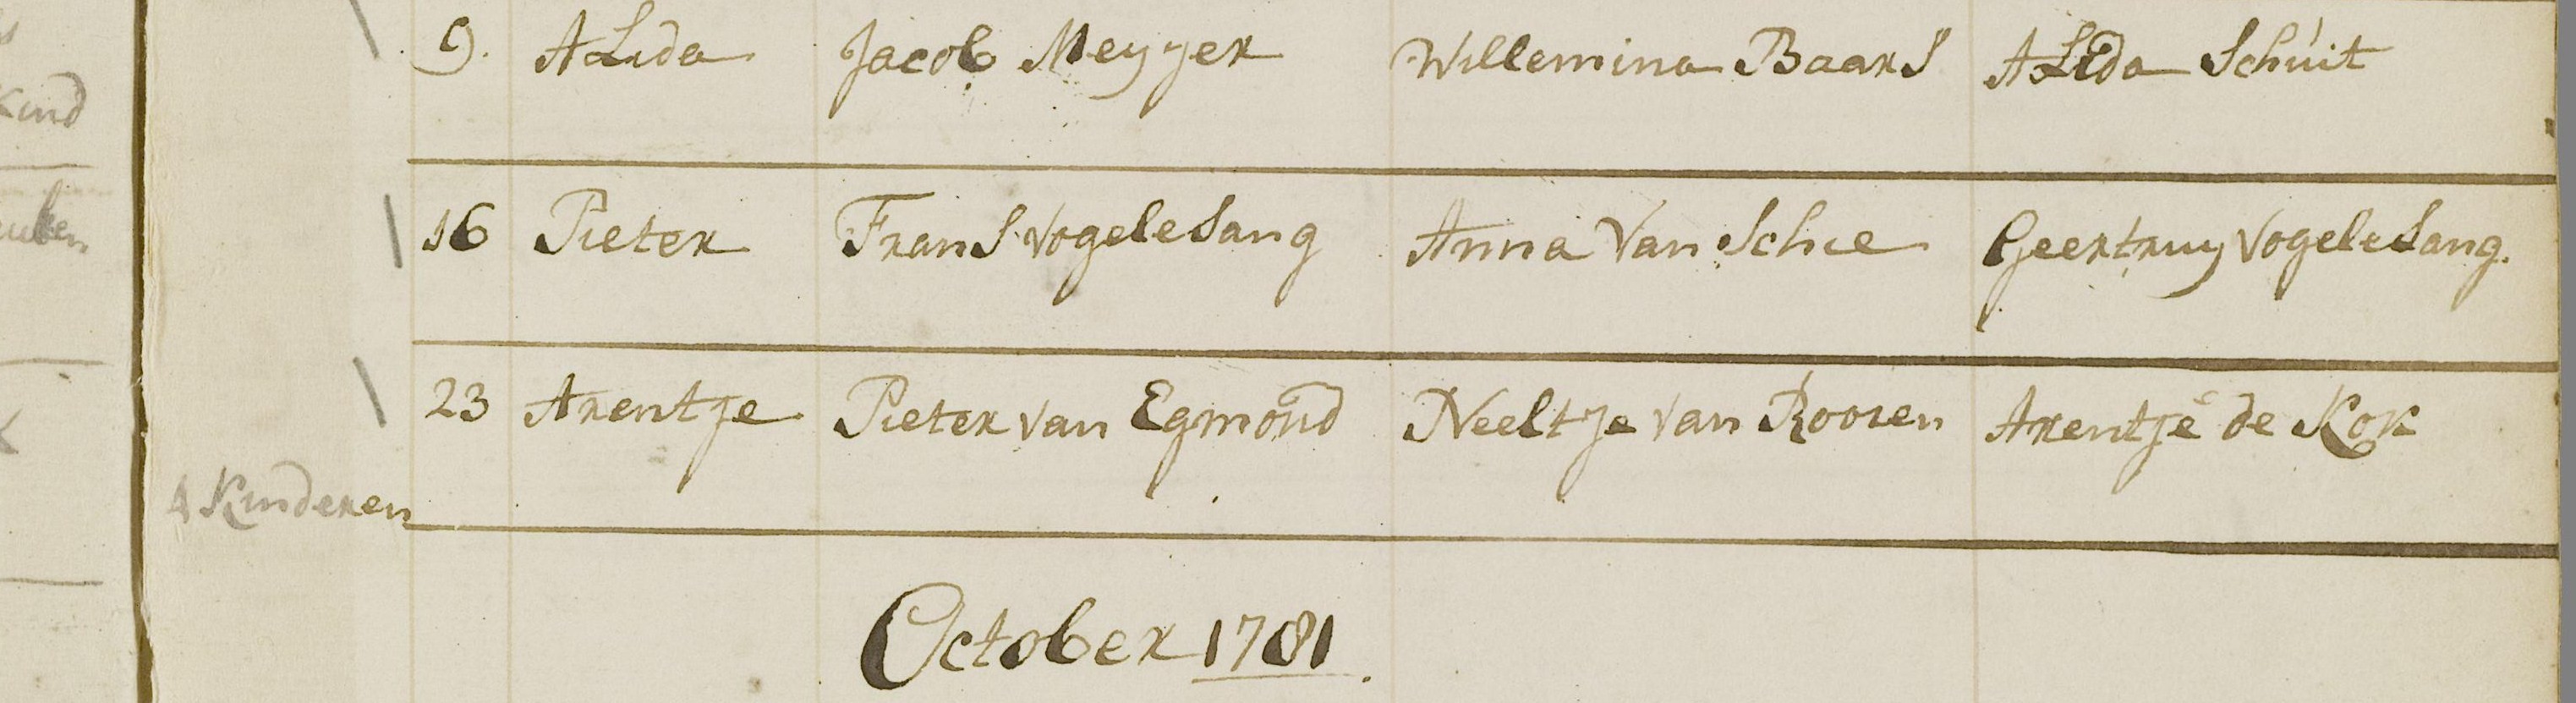 9. ALida Jacob Meyjer Willemina BaarS ALida Schuit
Kind
16 Pieter FranS VogeleSang Anna Van Schie Geertruy VogeleSang.
23 Arentje Pieter van Egmond Neeltje van Rooien Arentje de Kok
4 Kinderen
October 1781.